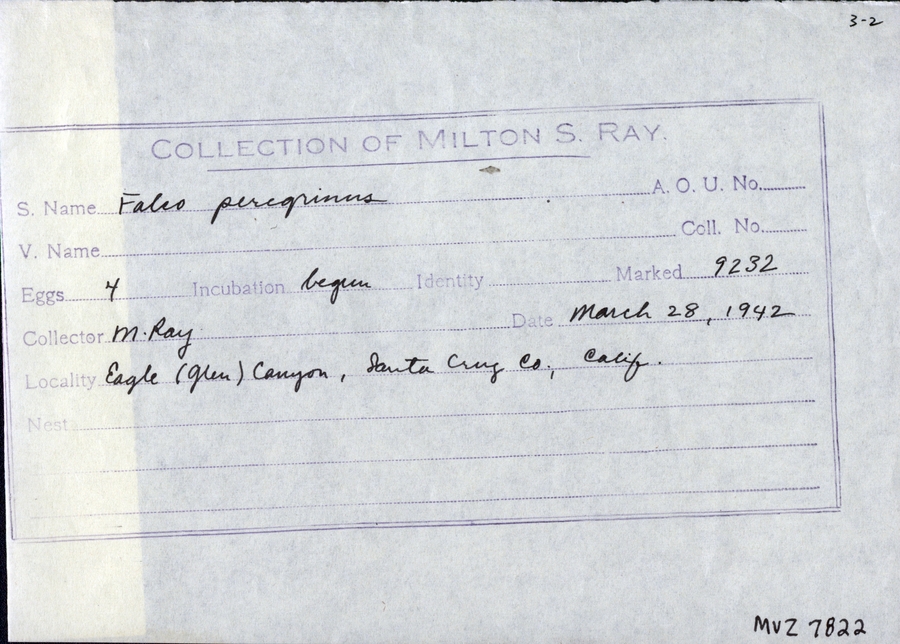 3-2
COLLECTION OF MILTON S. RAY.
S. Name Falco peregrinus A. O. U. No.
V. Name Coll. No.
Eggs 4 Incubation begun Identity Marked 9232
Collector M. Ray Date March 28, 1942
Locality Eagle (Glen) Canyon, Santa Cruz Co., Calif.
Nest
MVZ 7822